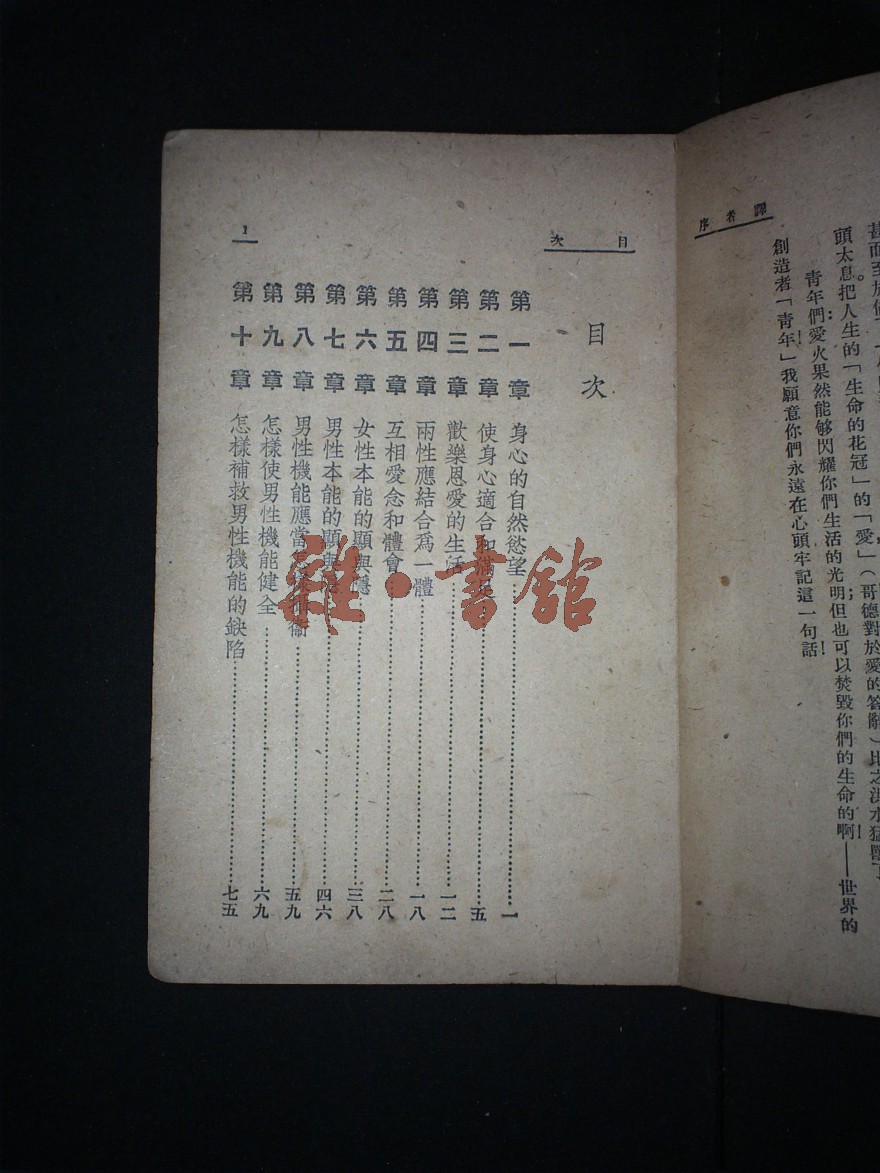 譯者序
甚而至於使
頭太息。把人生的「生命的花冠」的「愛」(哥德對於愛的答辭)比之洪水猛獸了!
青年們!愛火果然能够閃耀你們生活的光明;但也可以焚毀你們的生命的啊——世界的
創造者「青年」!我願意你們永遠在心頭牢記這一句話!
目次
1
目次
第一章 身心的自然慾望……一
第二章 使身心適合和滿足……五
第三章 歡樂恩愛的生活……一二
第四章 兩性應結合爲一體……一八
第五章 互相愛念和體會……二八
第六章 女性本能的顯與隱……三八
第七章 男性本能的顯與隱……四六
第八章 男性機能應當怎樣 衞……五九
第九章 怎樣使男性機能健全……六九
第十章 怎樣補救男性機能的缺陷……七五
雜·書館